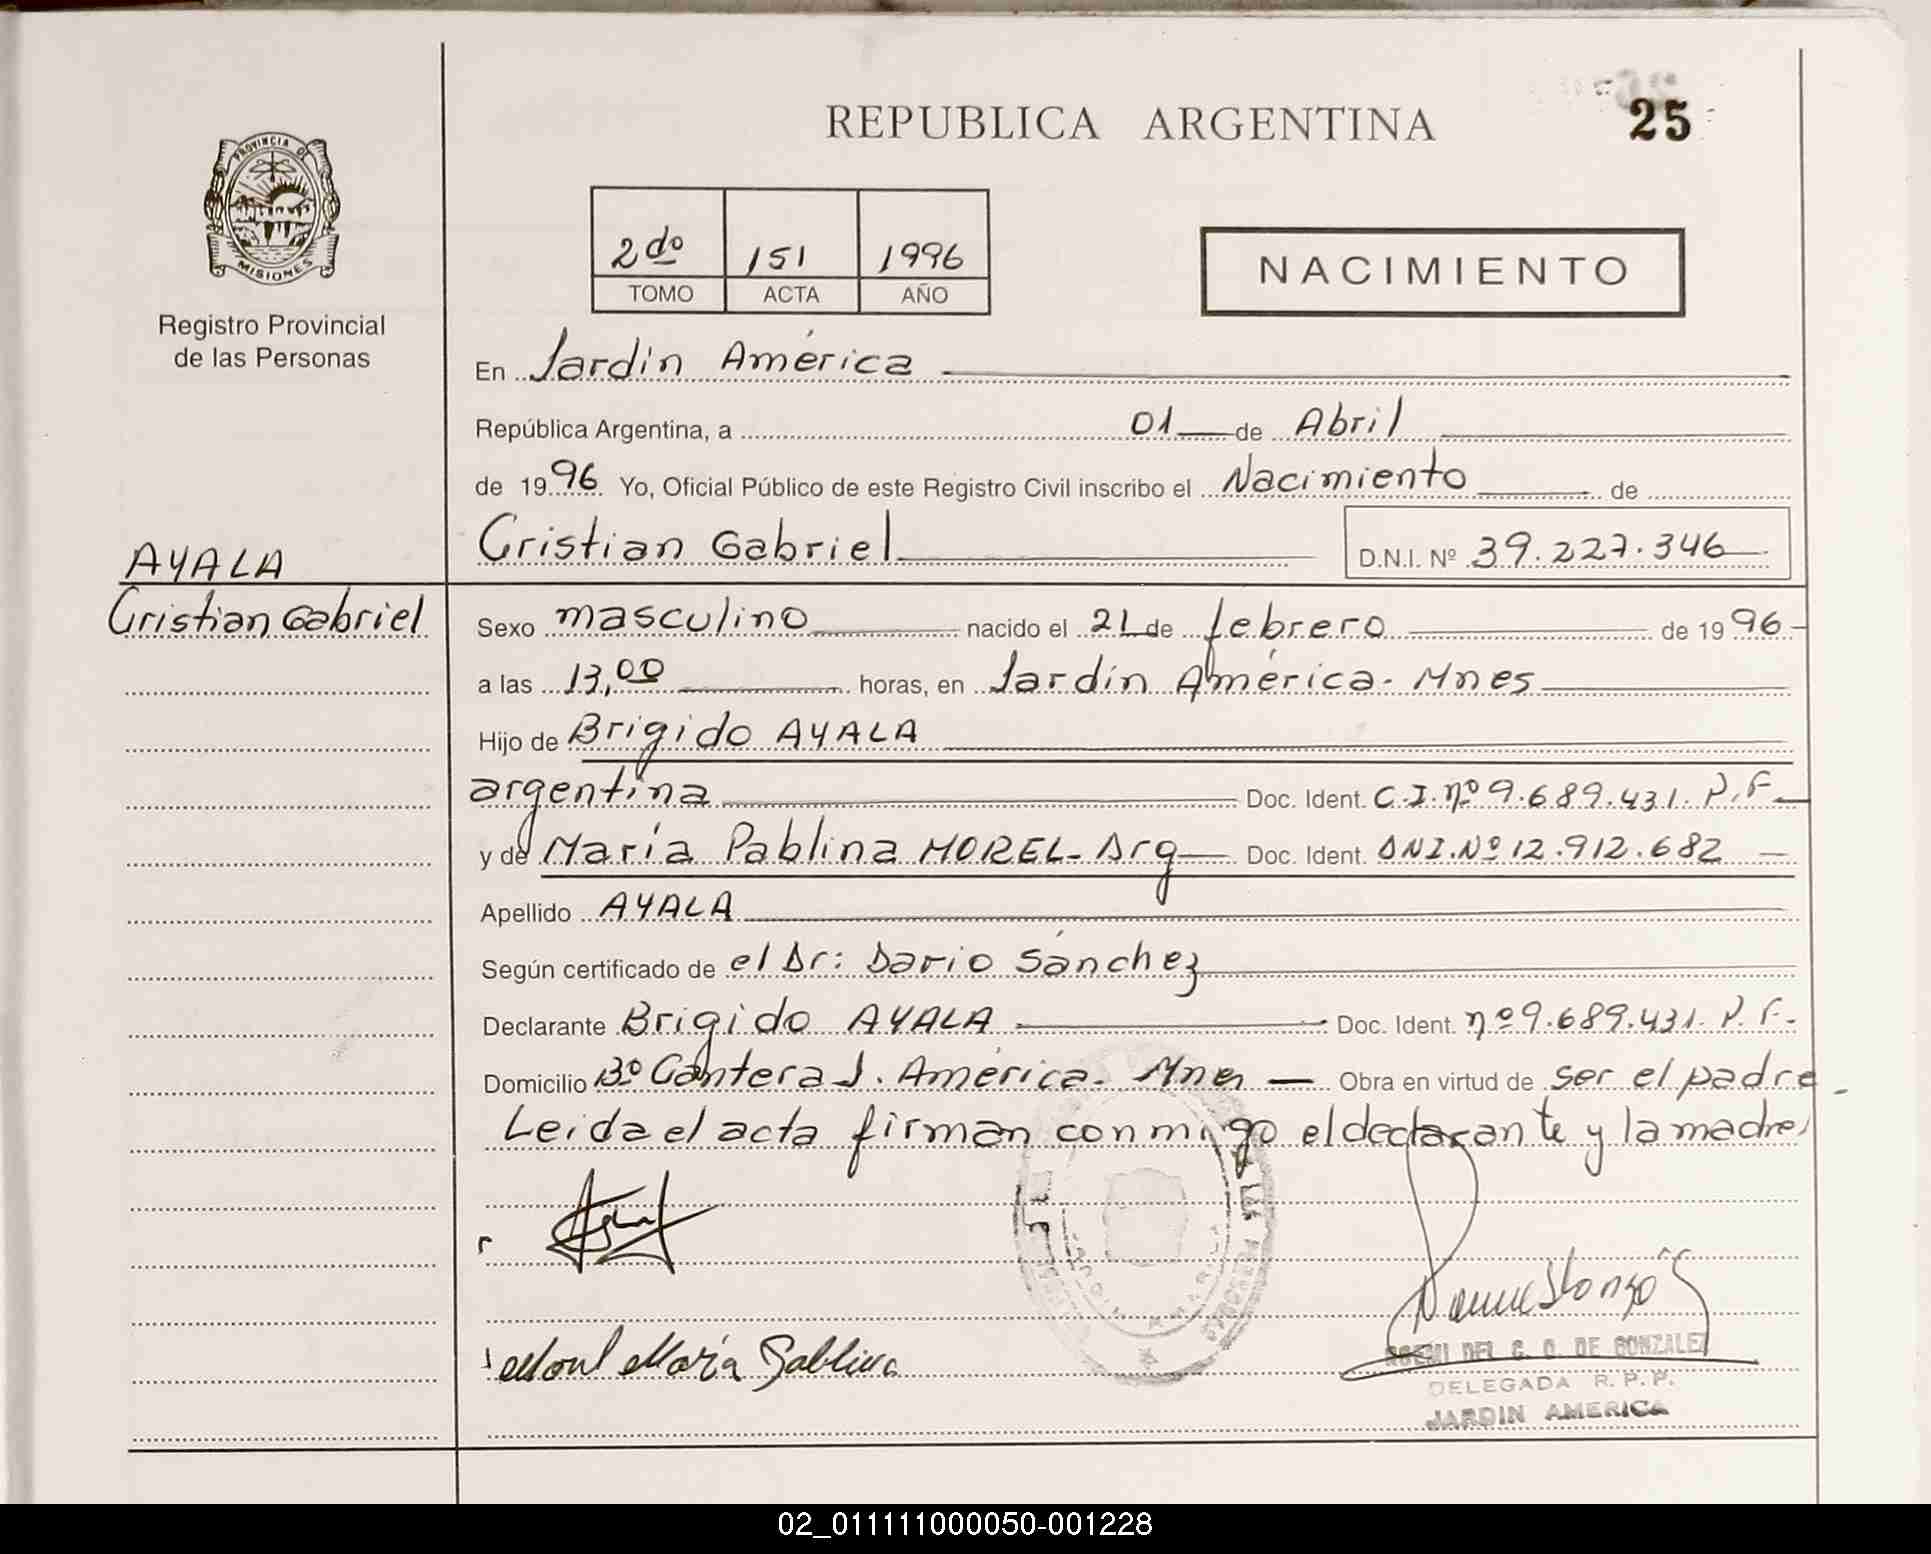 REPUBLICA ARGENTINA
25
PROVINCIA DE
MISIONES
Registro Provincial
de las Personas
2do 151 1996
TOMO ACTA AÑO
NACIMIENTO
En Jardín América
República Argentina, a 01 de Abril
de 1996 Yo, Oficial Público de este Registro Civil inscribo el Nacimiento de
Cristian Gabriel D.N.I. Nº 39.227.346
AYALA
Cristian Gabriel
Sexo masculino nacido el 21 de febrero de 1996
a las 13,00 horas, en Jardín América. Mnes
Hijo de Brigido AYALA
argentina Doc. Ident. C.I. nº 9.689.431. P.F.
y de María Pablina MOREL- Arg Doc. Ident. DNI. Nº 12.912.682
Apellido AYALA
Según certificado de el Dr: Dario Sánchez
Declarante Brigido AYALA Doc. Ident. nº 9.689.431. P.F.
Domicilio Bº Cantera J. América. Mnes Obra en virtud de ser el padre.
Leida el acta firman conmigo el declarante y la madre,
Morel María Pablina
NOEMI DEL C. O. DE GONZALEZ
DELEGADA R.P.P.
JARDIN AMERICA
02_011111000050-001228